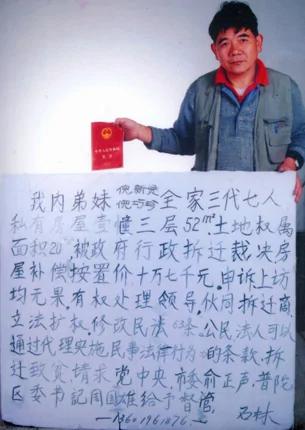 中华人民共和国
宪法
我内弟妹 倪新発 全家三代七人
倪巧玲
私有房屋壹幢三层52m²土地权属
面积20 被政府行政拆迁裁决房
屋补偿按置价十万七千元.申诉上访
均无果有权处理领导,伙同拆迁商
立法扩权,修改民法63条.公民法人可以
通过代理实施民事法律行为的条款,拆
迁致贫请求党中央.市委俞正声.普陀
区委书记周国雄给予督管.
石林